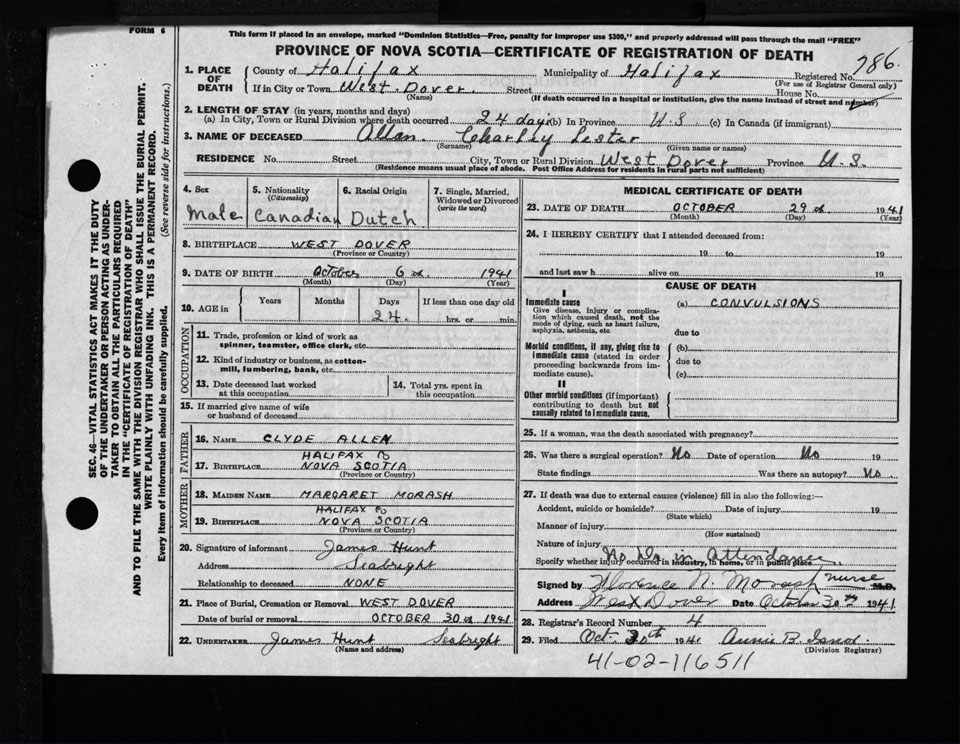 FORM 6
This form if placed in an envelope, marked "Dominion Statistics—Free, penalty for improper use $300," and properly addressed will pass through the mail "FREE"
PROVINCE OF NOVA SCOTIA—CERTIFICATE OF REGISTRATION OF DEATH
SEC. 46—VITAL STATISTICS ACT MAKES IT THE DUTY
OF THE UNDERTAKER OR PERSON ACTING AS UNDER-
TAKER TO OBTAIN ALL THE PARTICULARS REQUIRED
IN THE "CERTIFICATE OF REGISTRATION OF DEATH"
AND TO FILE THE SAME WITH THE DIVISION REGISTRAR WHO SHALL ISSUE THE BURIAL PERMIT.
WRITE PLAINLY WITH UNFADING INK. THIS IS A PERMANENT RECORD.
Every item of information should be carefully supplied. (See reverse side for instructions.)
1. PLACE OF DEATH County of Halifax Municipality of Halifax Registered No. 786.
(For use of Registrar General only)
If in City or Town West Dover Street House No.
(Name) (If death occurred in a hospital or institution, give the name instead of street and number)
2. LENGTH OF STAY (in years, months and days)
(a) In City, Town or Rural Division where death occurred 24 days (b) In Province (c) In Canada (if immigrant)
3. NAME OF DECEASED Allan. Charley Lester
(Surname) (Given name or names)
RESIDENCE No. Street City, Town or Rural Division West Dover Province
(Residence means usual place of abode. Post Office Address for residents in rural parts not sufficient)
4. Sex Male
5. Nationality (Citizenship) Canadian
6. Racial Origin Dutch
7. Single, Married, Widowed or Divorced (write the word)
8. BIRTHPLACE WEST DOVER
(Province or Country)
9. DATE OF BIRTH October 6th 1941
(Month) (Day) (Year)
10. AGE in Years Months Days 24. If less than one day old hrs. or min.
OCCUPATION
11. Trade, profession or kind of work as spinner, teamster, office clerk, etc.
12. Kind of industry or business, as cotton-mill, lumbering, bank, etc.
13. Date deceased last worked at this occupation
14. Total yrs. spent in this occupation
15. If married give name of wife or husband of deceased
FATHER
16. NAME CLYDE ALLEN
17. BIRTHPLACE HALIFAX CO NOVA SCOTIA
(Province or Country)
MOTHER
18. MAIDEN NAME MARGARET MORASH
19. BIRTHPLACE HALIFAX CO NOVA SCOTIA
(Province or Country)
20. Signature of informant James Hunt
Address Seabright
Relationship to deceased NONE
21. Place of Burial, Cremation or Removal WEST DOVER
Date of burial or removal OCTOBER 30th 1941
22. UNDERTAKER James Hunt Seabright
(Name and address)
MEDICAL CERTIFICATE OF DEATH
23. DATE OF DEATH OCTOBER 29th 1941
(Month) (Day) (Year)
24. I HEREBY CERTIFY that I attended deceased from:
19 to 19
and last saw h alive on 19
CAUSE OF DEATH
I
Immediate cause (a) CONVULSIONS
Give disease, injury or complication which caused death, not the mode of dying, such as heart failure, asphyxia, asthenia, etc.
due to
Morbid conditions, if any, giving rise to immediate cause (stated in order proceeding backwards from immediate cause).
(b)
due to
(c)
II
Other morbid conditions (if important) contributing to death but not causally related to immediate cause.
25. If a woman, was the death associated with pregnancy?
26. Was there a surgical operation? No Date of operation No 19
State findings Was there an autopsy? No.
27. If death was due to external causes (violence) fill in also the following:—
Accident, suicide or homicide? Date of injury 19
(State which)
Manner of injury
(How sustained)
Nature of injury
No Dr. in attendance
Specify whether injury occurred in industry, in home, or in public place
Signed by Florence N. Morash nurse M.D.
Address West Dover Date October 30th 1941
28. Registrar's Record Number 4
29. Filed Oct. 30th 1941 Annie B.
(Division Registrar)
41-02-116511